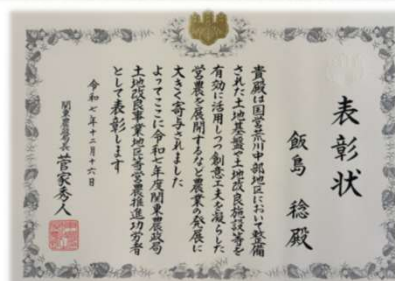 表彰状
飯島 稔殿
貴殿は国営荒川中部地区において整備
された土地基盤や土地改良施設等を
有効に活用しつつ創意工夫を凝らした
営農を展開するなど農業の発展に
大きく寄与されました
よってここに令和七年度関東農政局
土地改良事業地区等営農推進功労者
として表彰します
令和七年十二月十六日
関東農政局長 菅家秀人